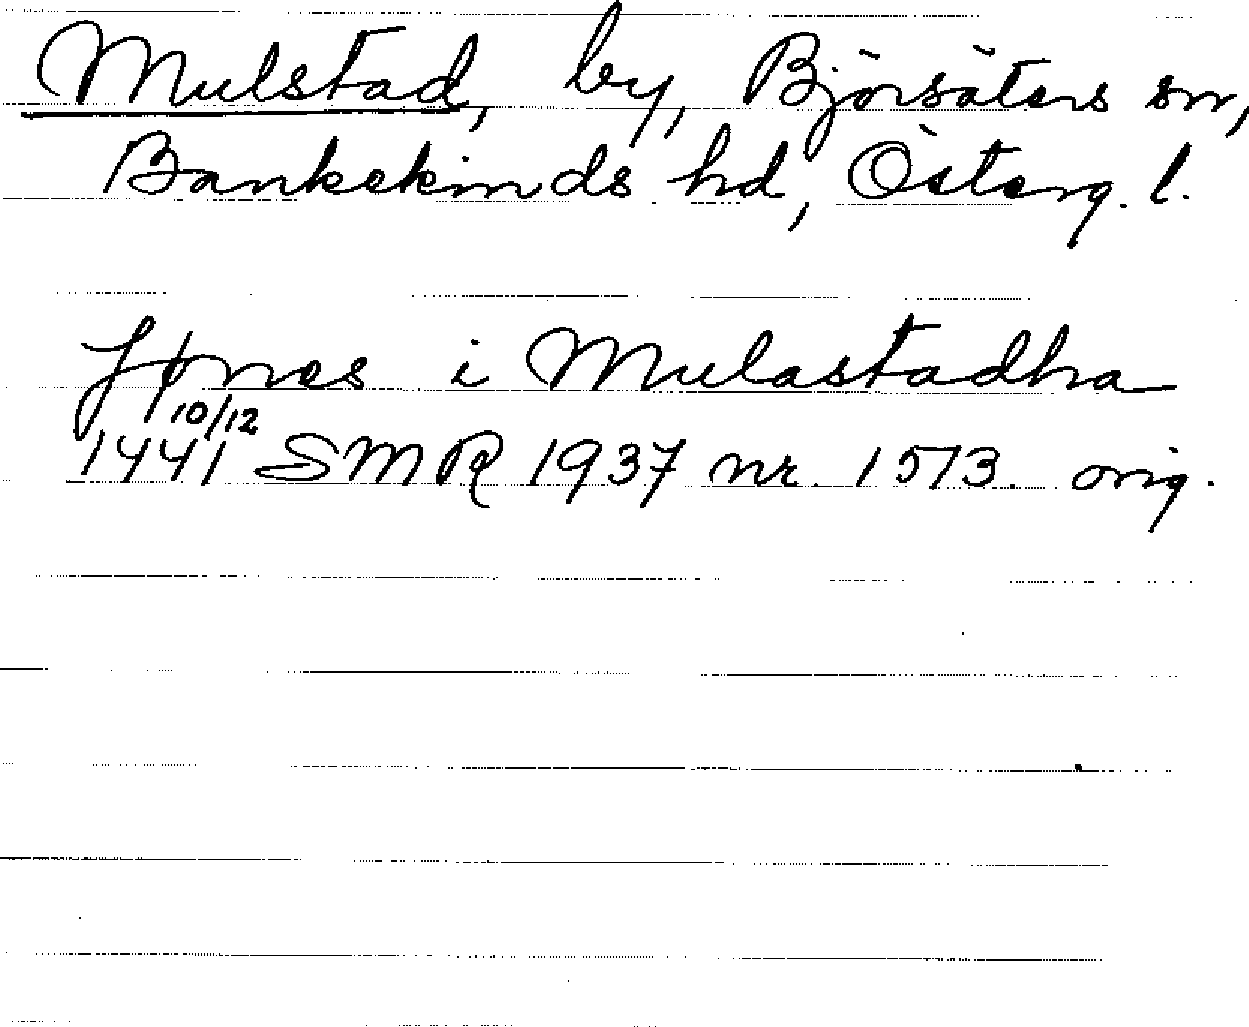 Mulstad, by, Björsäters sn,
Bankekinds hd, Österg. l.
Jønes i Mulastadha
10/12
1441 SMR 1937 nr. 1573. orig.